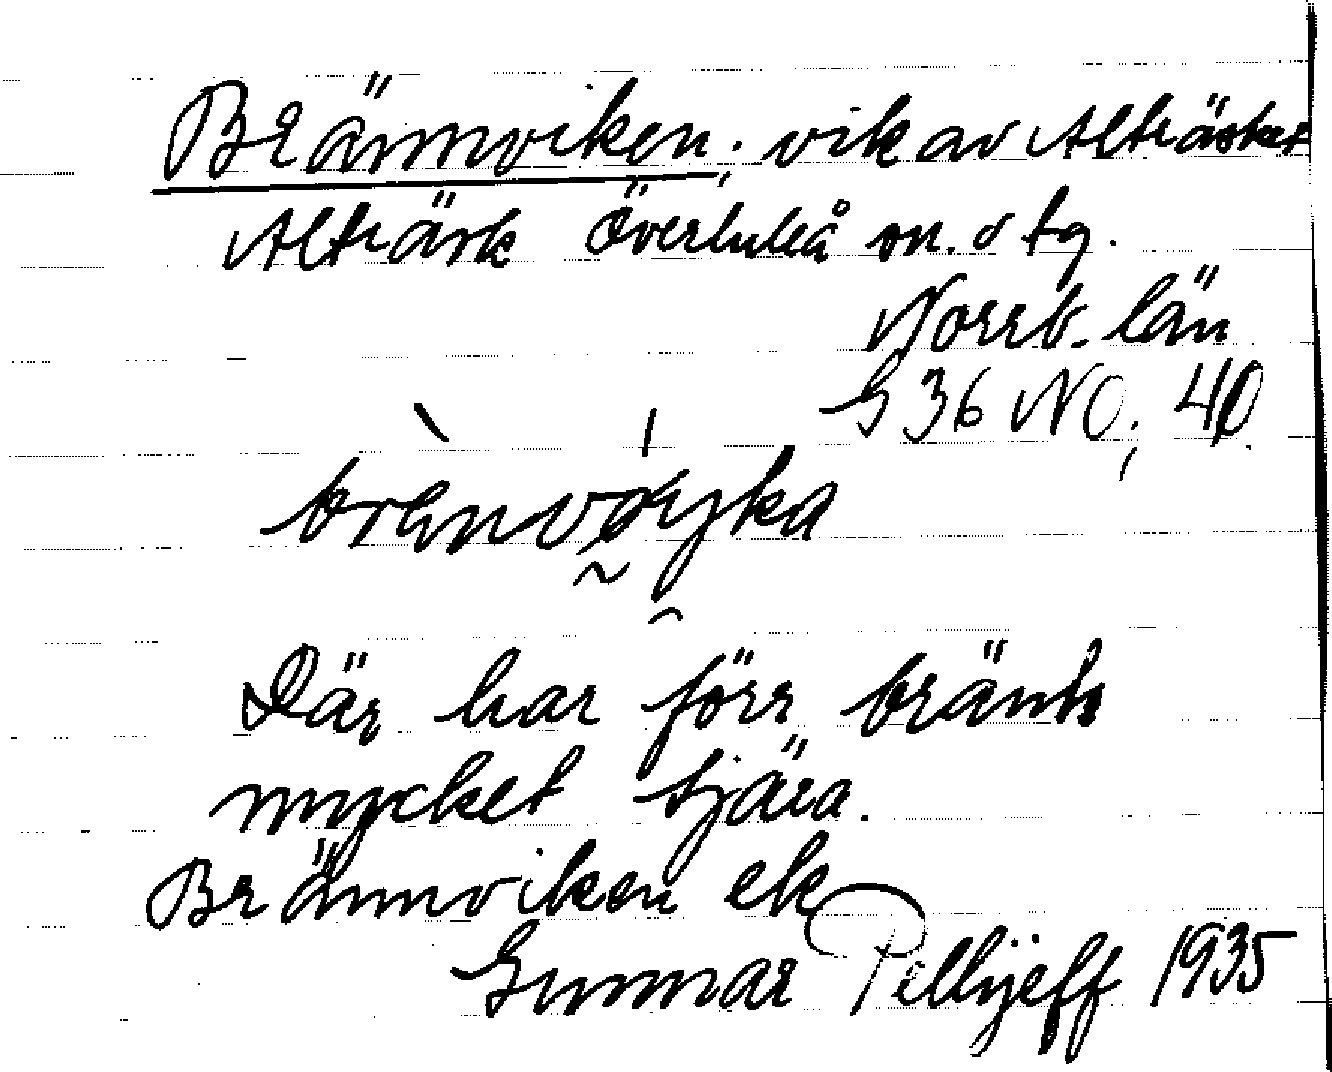 Brännviken; vik av Altträsket
Altträsk Överluleå sn. o tg.
Norrb. län
G 36 NO; 40
Där har förr bränts
mycket tjära.
Brännviken ek
Gunnar Pellijeff 1935